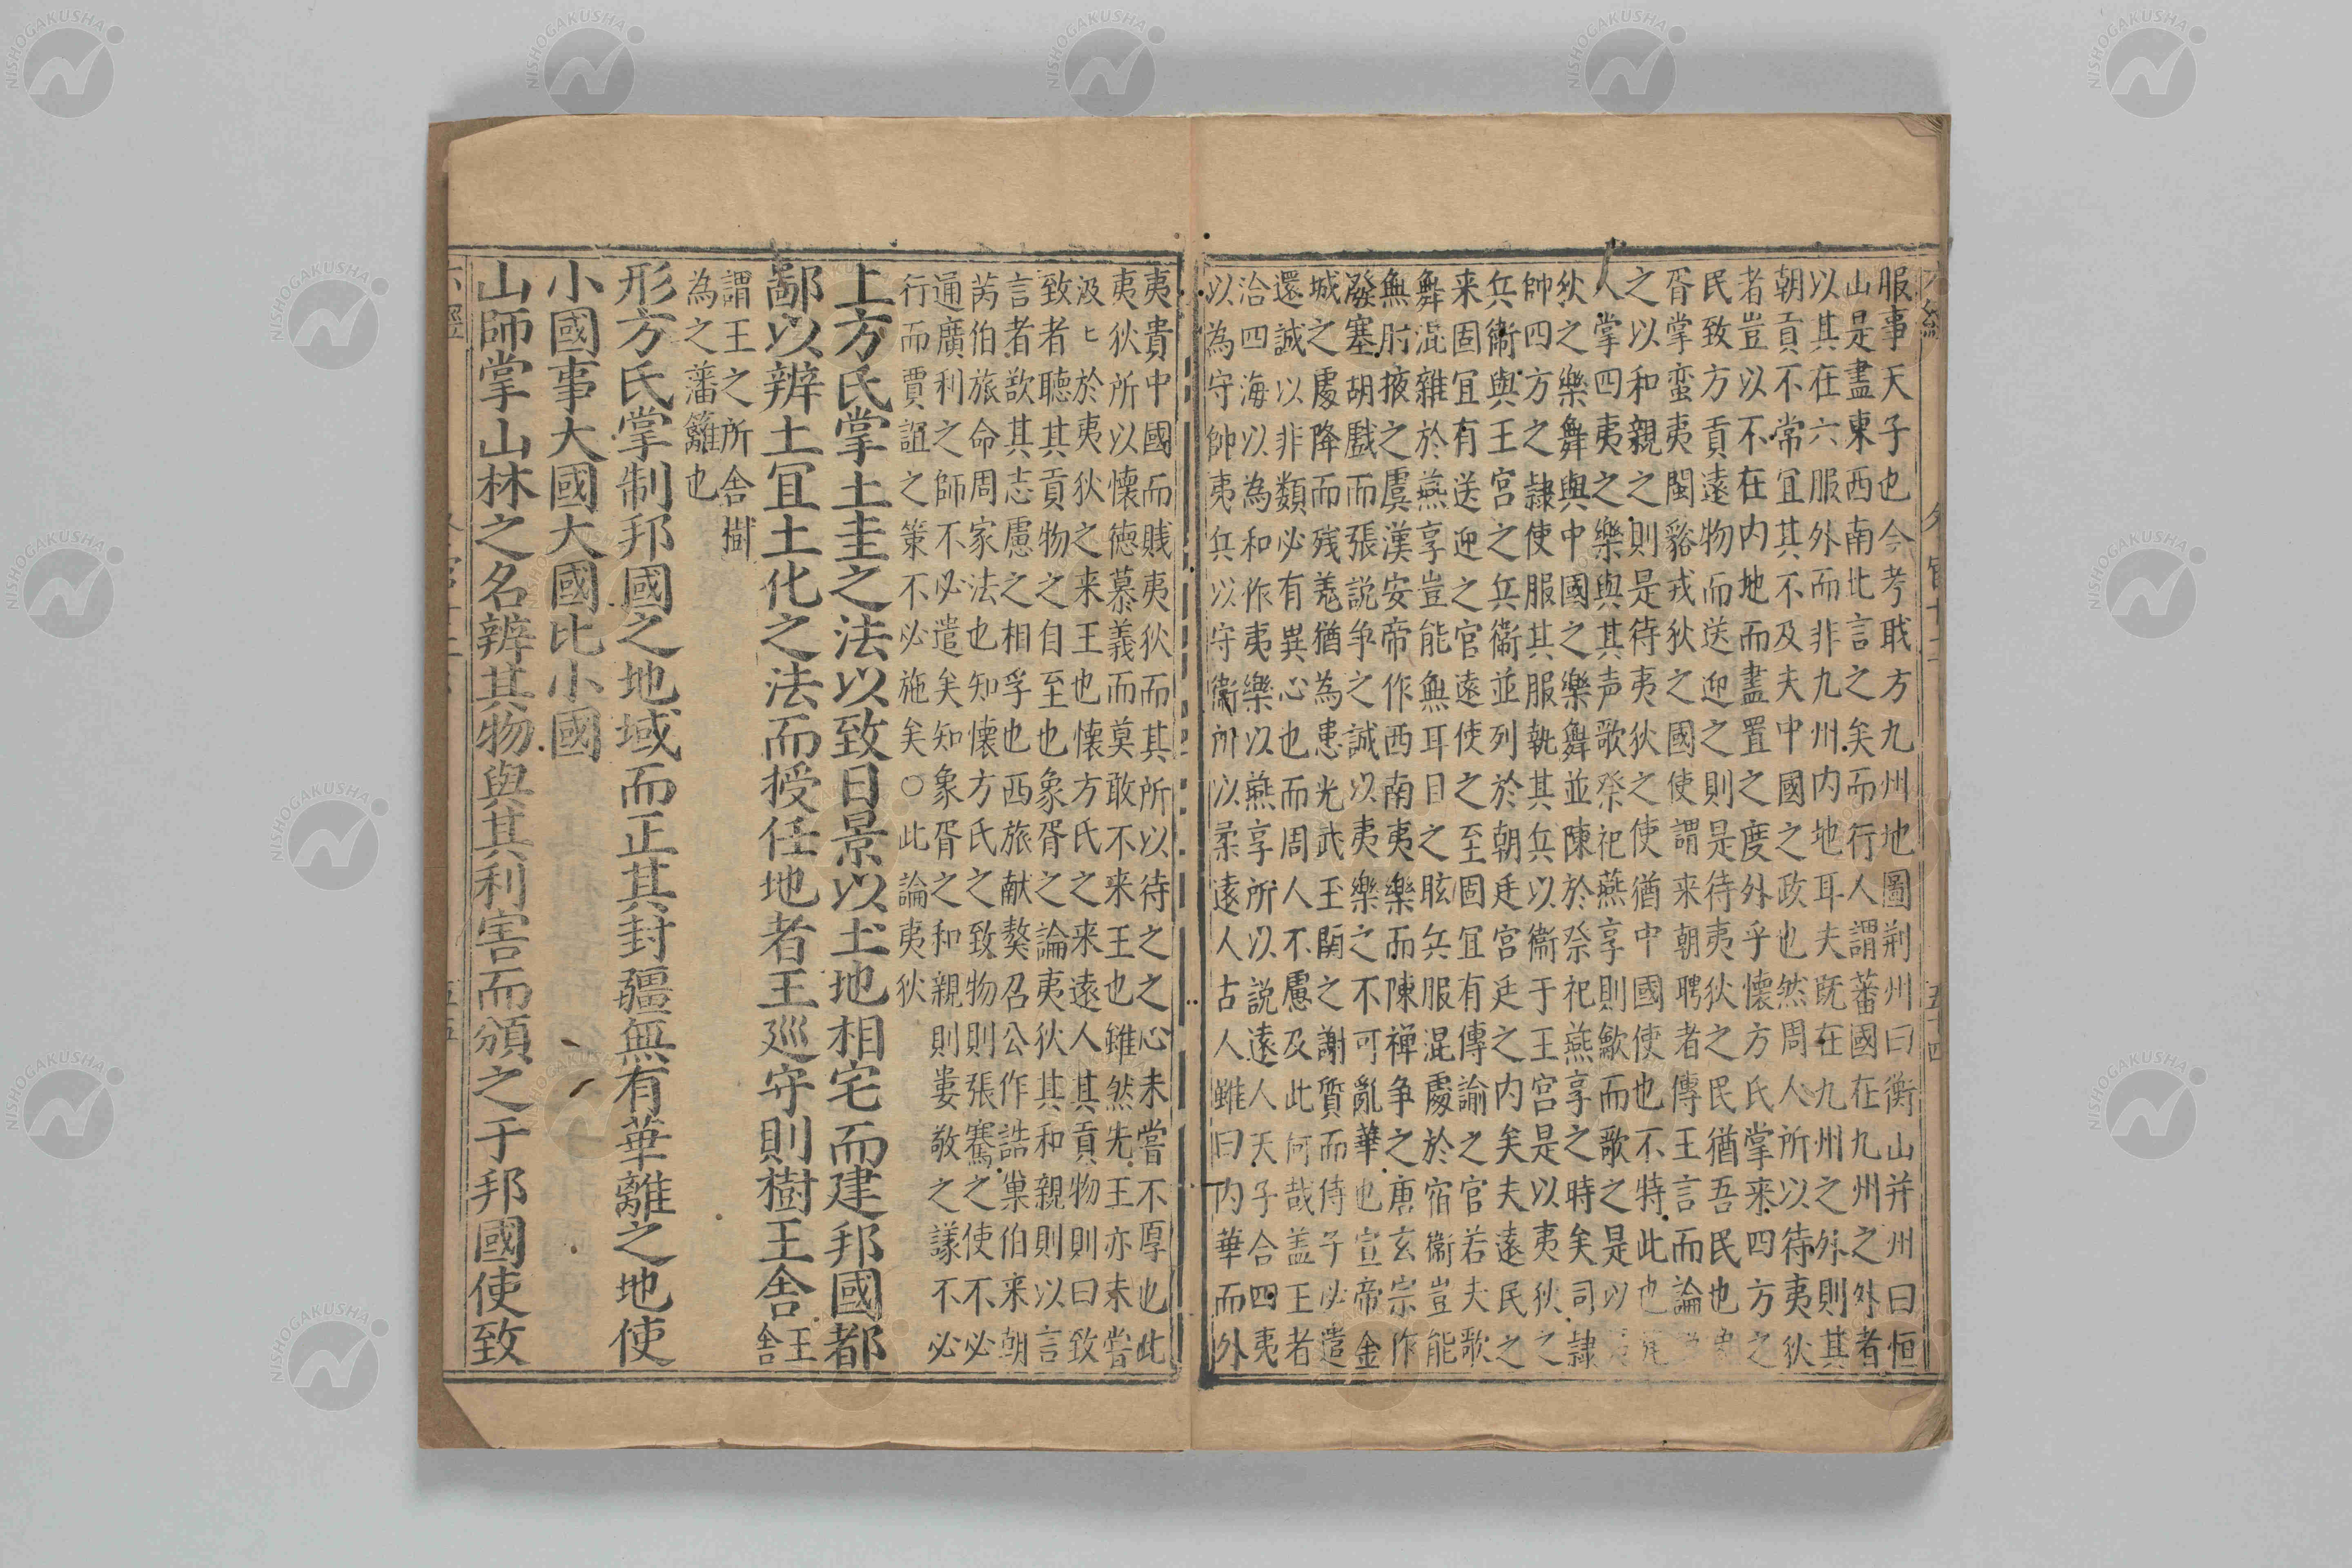 服事天子也今考職方九州地圖荆州曰衡山并州曰恒
山是盡東西南北言之矣而行人謂蕃國在九州之外者
以其在六服外而非九州内地耳夫既在九州之外則其
朝貢不常宜其不及夫中國之政也然周人所以待夷狄
者豈以不在内地而盡置之度外乎懷方氏掌来四方之
民致方貢遠物而送迎之則是待夷狄之民猶吾民也
胥掌蛮夷閩貉戎狄之國使謂来朝聘者傳王言而論
之以和親之則是待夷狄之使猶中國使也不特此也
人掌四夷之樂與其声歌祭祀燕享則龡而歌之是以
狄之樂舞與中國之樂舞並陳於祭祀燕享之時矣司隸
帥四方之隷使服其服執其兵以衞于王宮是以夷狄之
兵衞與王宮之兵衞並列於朝廷宮廷之内矣夫遠民之
来固宜有送迎之官遠使之至固宜有傳諭之官若夫歌
舞混雜於燕享豈能無耳目之眩兵服混處於宿衞豈能
無肘掖之虞漢安帝作西南夷樂而陳禅争之唐玄宗作
潑塞胡戲而張説争之誠以夷樂之不可亂華也宣帝金
城之處降而残羗猶為患光武玉関之謝質而侍子必遣
還誠以非類必有異心也而周人不慮及此何哉盖王者
洽四海以為和作夷樂以燕享所以説遠人天子合四夷
以為守帥夷兵以守衞所以柔遠人古人雖曰内華而外
夷貴中國而賎夷狄而其所以待之之心未嘗不厚也此
夷狄所以懐徳慕義而莫敢不来王也雖然先王亦未嘗
汲〻於夷狄之来王也懷方氏之来遠人其貢物則曰致
致者聴其貢物之自至也象胥之論夷狄其和親則以言
言者欵其志慮之相孚也西旅献獒召公作誥巢伯来朝
芮伯旅命周家法也知懷方氏之致物則張騫之使不必
通廣利之師不必遣矣知象胥之和親則婁敬之議不必
行而賈誼之策不必施矣○此論夷狄
土方氏掌土圭之法以致日景以土地相宅而建邦國都
鄙以辨土宜土化之法而授任地者王巡守則樹王舍王舍
謂王之所舎樹
為之藩籬也
形方氏掌制邦國之地域而正其封疆無有華離之地使
小國事大國大國比小國
山師掌山林之名辨其物與其利害而頒之于邦國使致